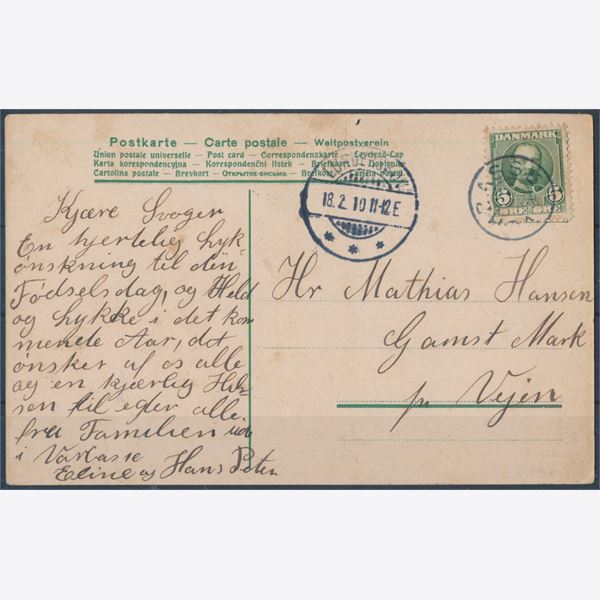 Postkarte – Carte postale – Weltpostverein
Union postale universelle – Post card – Correspondenzkarte – Levelező-Lap
Karta korespondencyjna – Korespondenční listek – Briefkaart – Dopisnice
Cartolina postale – Brevkort – Открытое письмо. – Brefkort –
DANMARK
5 5
ØRE ØRE
18.2.10 11-12E
Kjære Svoger
En hjertelig Lyk
ønskning til din
Fødselsdag, og Held
og Lykke i det kom
mende Aar, det
ønsker af os alle
og en kjærlig Hil
sen til eder alle
fra Familien ude
i
Eline og Hans Peter
Hr Mathias Hansen
Gamst Mark
pr Vejen